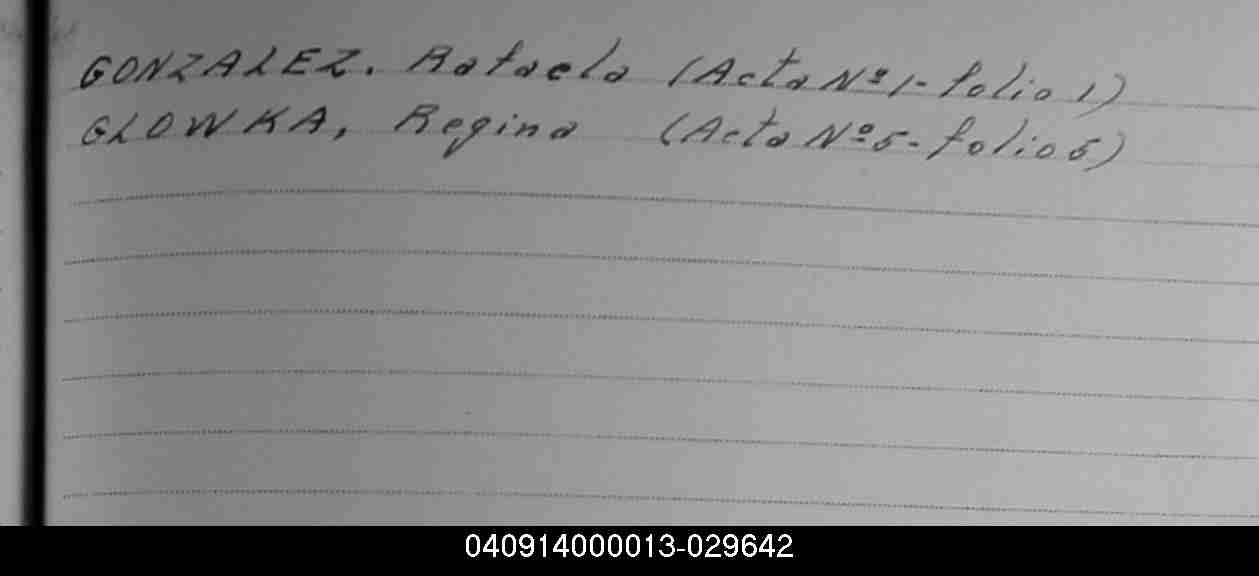 GONZALEZ. Rafaela (Acta Nº1-folio 1)
GLOWKA, Regina (Acta Nº5-folio 5)
040914000013-029642